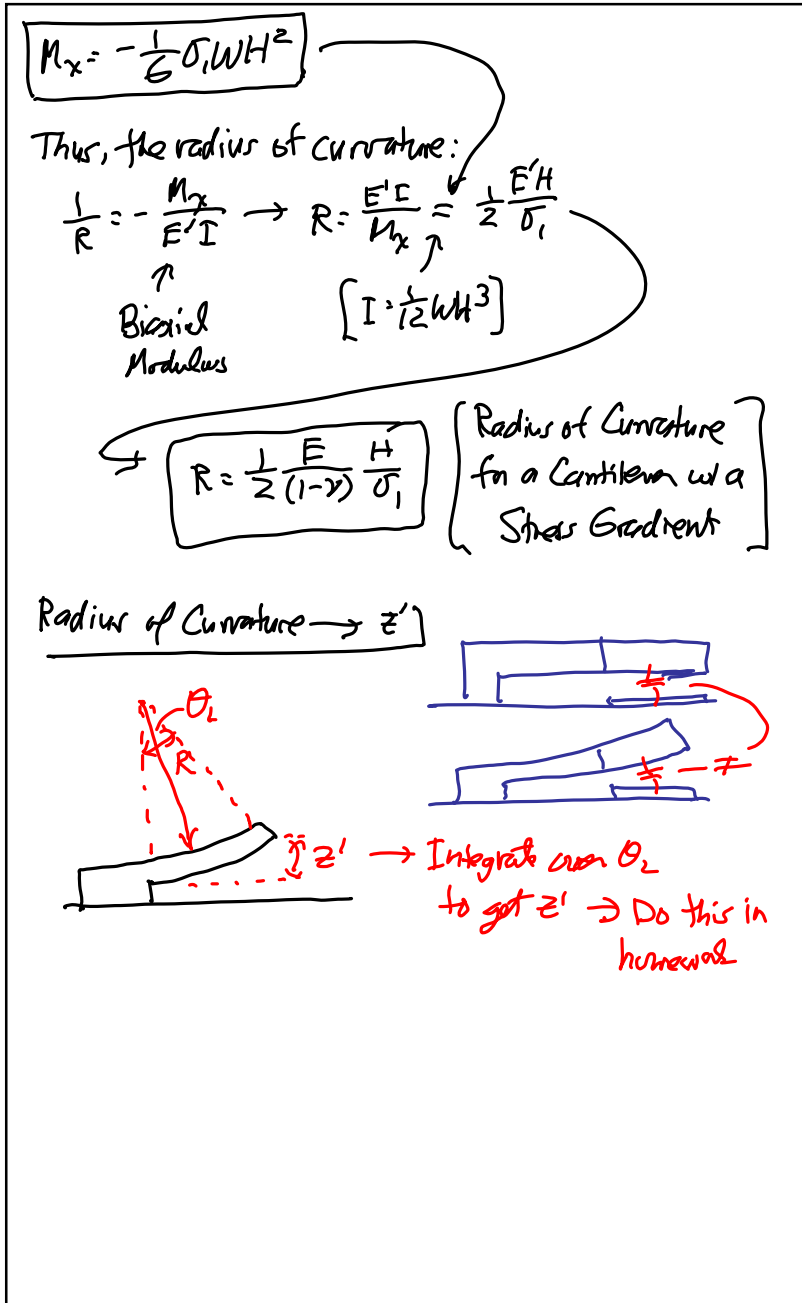 Mₓ = -1/6 σ₁WH²
Thus, the radius of curvature:
1/R = - Mₓ/E'I → R = E'I/Mₓ = 1/2 E'H/σ₁
↑ Biaxial Modulus
[I = 1/12 WH³]
R = 1/2 E/(1-ν) H/σ₁
[Radius of Curvature
for a Cantilever w/ a
Stress Gradient]
Radius of Curvature → z'
θ_L
R
≠
z' → Integrate over θ_L
to get z' → Do this in
homework